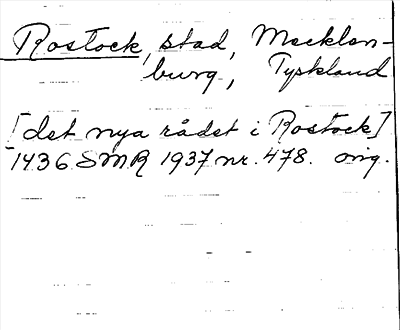 Rostock, stad, Mecklen-
burg, Tyskland
[det nya rådet i Rostock]
1436 SMR 1937 nr. 478. orig.